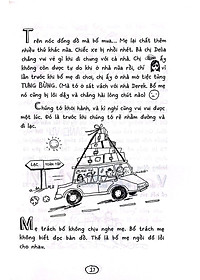 Trên nóc đống đồ mà bố mua... Mẹ lại chất thêm
nhiều thứ khác nữa. Chiếc xe bị nhồi nhét. Bà chị Delia
chẳng vui vẻ gì khi đi chung với cả nhà. Chị ấy
không còn được tự do khi ở nhà nữa rồi, chỉ vì
lần trước khi bố mẹ đi chơi, chị ấy ở nhà mở tiệc tùng
TƯNG BỪNG. (Mà tớ ở sát vách với nhà Derek. Bố mẹ
nó cũng bị lôi dậy và chẳng hài lòng chút nào!)
Chúng tớ khởi hành, và kì nghỉ cũng vui được
một lúc. Đó là trước khi chúng tớ rẽ nhầm đường và
đi lạc.
LẠC
TOÀN TẬP
Mẹ trách bố không chịu nghe mẹ. Bố trách mẹ
không biết đọc bản đồ. Thế là bố mẹ ngồi đổ lỗi
cho nhau.
21